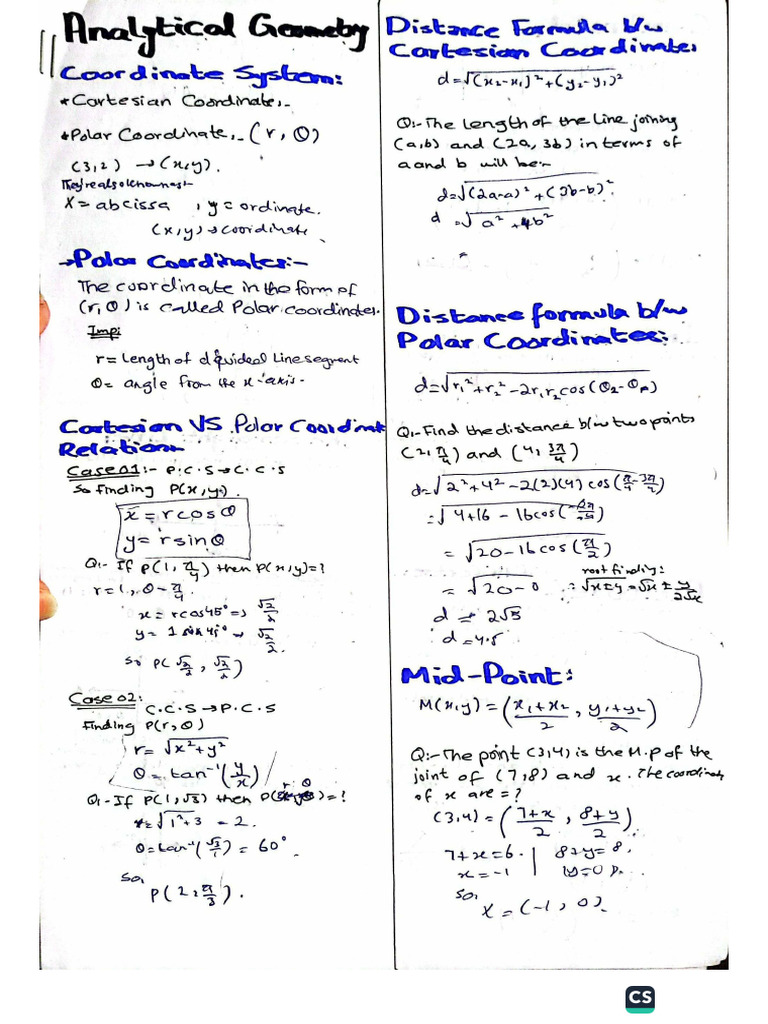 Analytical Geometry
Coordinate System:
* Cartesian Coordinate,-
* Polar Coordinate,- (r, θ)
(3,2) → (x,y).
They're also known as:-
X = abcissa , y = ordinate.
(x,y) → coordinate
→ Polar Coordinates:-
The coordinate in the form of
(r, θ) is called Polar coordinates.
Imp:
r = Length of line segment
θ = angle from the x-axis.
Cartesian VS Polar Coordinat
Relation:-
Case 01:- P.C.S → C.C.S
So Finding P(x,y)
x = r cos θ
y = r sin θ
Q:- If P(1, π/4) then P(x,y) = ?
r = 1, θ - π/4
x = r cos 45° => √2/2
y = 1 sin 45° → √2/2.
So P(√2/2, √2/2)
Case 02:
C.C.S → P.C.S
Finding P(r, θ)
r = √x² + y²
θ = tan⁻¹(y/x)
Q:- If P(1, √3) then P(r θ) = ?
r = √1² + 3 = 2.
θ = tan⁻¹(√3/1) = 60°
So,
P(2, π/3).
Distance Formula b/w
Cartesian Coordinate:
d = √(x₂-x₁)² + (y₂-y₁)²
Q:- The Length of the Line joining
(a,b) and (2a, 3b) in terms of
a and b will be:-
d = √(2a-a)² + (3b-b)²
d = √a² + 4b²
Distance formula b/w
Polar Coordinates:
d = √r₁² + r₂² - 2r₁r₂ cos(θ₂-θ₁)
Q:- Find the distance b/w two points
(2, π/4) and (4, 3π/4)
d = √2² + 4² - 2(2)(4) cos(π/4 - 3π/4)
= √4 + 16 - 16 cos(-2π/4)
= √20 - 16 cos(π/2)
root finding:
= √20 - 0 ∴ √x±y = √x ± y/2√x
d = 2√5
d = 4.5
Mid-Point:
M(x,y) = (x₁+x₂/2, y₁+y₂/2)
Q:- The point (3,4) is the M.P of the
joint of (7,8) and x. The coordinate
of x are = ?
(3,4) = (7+x/2, 8+y/2)
7+x = 6. | 8+y = 8.
x = -1 | y = 0
So,
X = (-1, 0).
CS